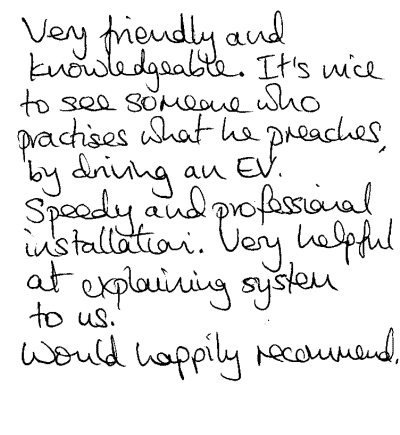 Very friendly and
knowledgeable. It's nice
to see someone who
practises what he preaches,
by driving an EV.
Speedy and professional
installation. Very helpful
at explaining system
to us.
Would happily recommend.